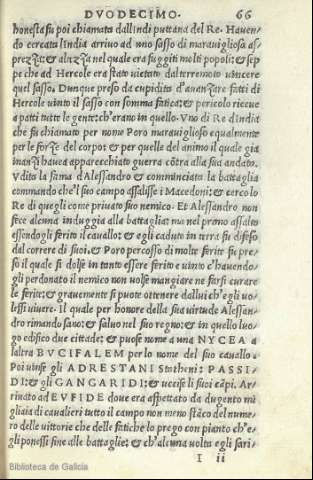 DVODECIMO. 66
honesta fu poi chiamata dallIndi puttana del Re. Hauen-
do cercata lIndia arriuo ad uno sasso di marauigliosa as-
prezza: & altezza nel quale era fuggiti molti popoli: & sep
pe che ad Hercole era stato uietato dal terremoto uincere
quel sasso. Dunque preso da cupidita d'auanzare fatti di
Hercole uinto il sasso con somma fatica: & pericolo riceue
a patti tutte le gente: ch'erano in quello. Vno di Re d'india
che fu chiamato per nome Poro marauiglioso equalmente
per le forze del corpo: & per quelle del animo il quale gia
inanzi haueа apparecchiato guerra cōtra alla sua andata.
Vdita la fama d'Alessandro & comminciato la battaglia
commando che'l suo campo assalisse i Macedoni: & cerco lo
Re di quegli come priuato suo nemico. Et Alessandro non
fece alcuna induggia alla battaglia: ma nel primo assalto
essendogli ferito il cauallo: & egli caduto in terra fu difeso
dal correre di suoi. & Poro percosso di molte ferite fu pre-
so il quale si dolse in tanto essere ferito e uinto c'hauendo-
gli perdonato il nemico non uolse mangiare ne farsi curare
le ferite: & grauemente si puote ottenere dallui ch'egli uo-
lessi uiuere. Il quale per honore della sua uirtude Alessan-
dro rimando sano: & saluo nel suo regno: & in quello luo-
go edifico due cittade: & puose nome a una NYCEA a
laltra BVCIFALEM per lo nome del suo cauallo.
Poi uinse gli ADRESTANI Statheni: PASSI-
DI: & gli GANGARIDI: & uccise li suoi cāpi. Ar-
riuato ad EVFIDE doue era aspettato da dugento mi
gliaia di cauallieri tutto il campo non meno stāco del nume-
ro delle uittorie che delle fatiche lo prego con pianto ch'e-
gli ponessi fine alle battaglie: & ch'alcuna uolta egli sari-
I ii
Biblioteca de Galicia